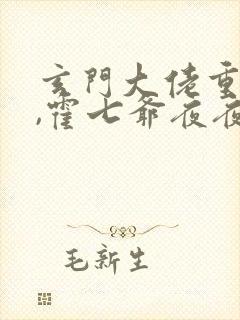 玄門大佬重
,霍七爺夜夜
毛新生